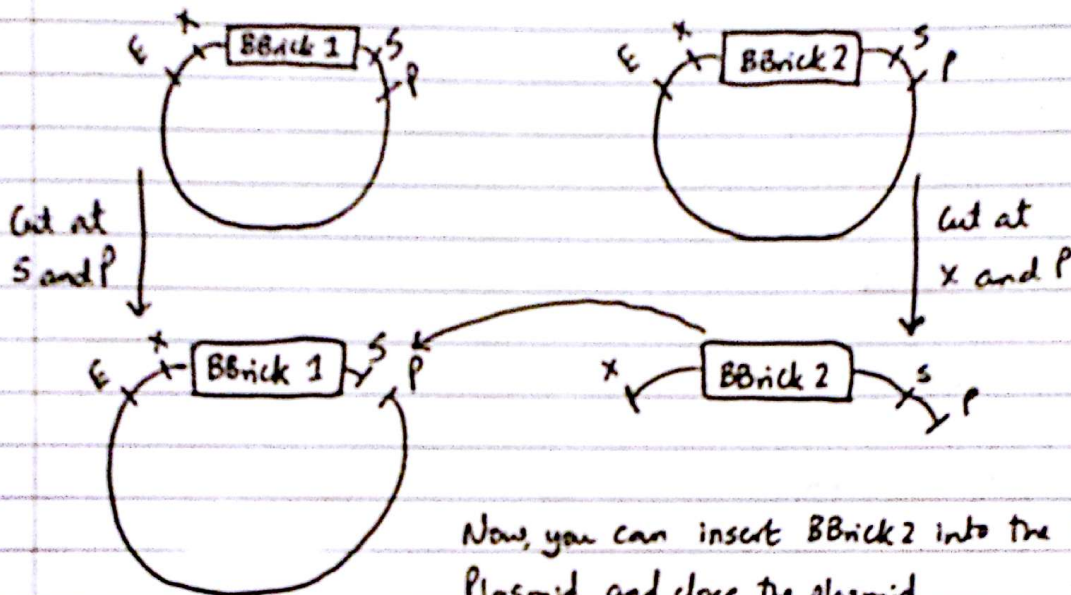 X BBrick 1 S
E P
X BBrick 2 S
E P
Cut at
S and P
Cut at
X and P
X BBrick 1 S P
E
X BBrick 2 S P
Now, you can insert BBrick 2 into the
Plasmid and close the plasmid